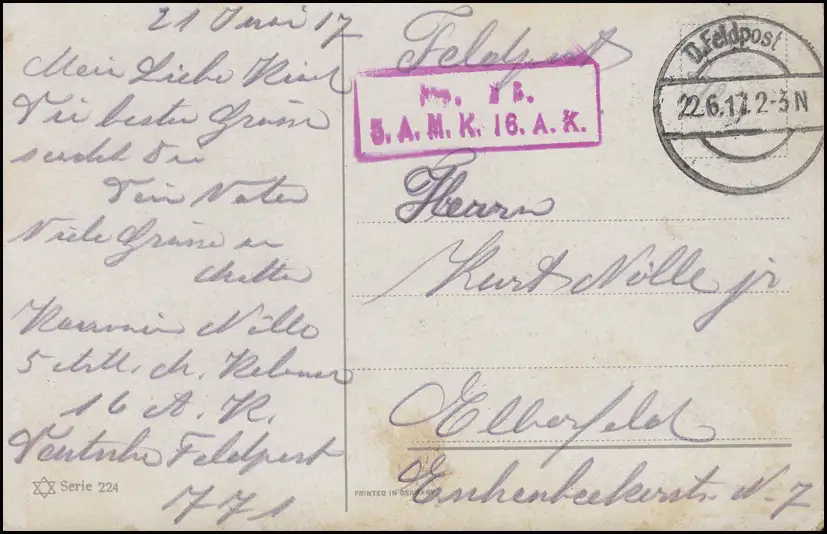 21 Juni 17
Mein Liebe Kind
Die besten Grüsse
sendet Dir
Dein Vater
Viele Grüsse an
Mutter
Nölle
5 Artl. M. Kolonne
16 A. K.
Deutsche Feldpost
771
Serie 224
Feldpost
5. A. M. K. 16. A. K.
D. Feldpost
22.6.17. 2-3 N
Herrn
Kurt Nölle jr
Elberfeld
PRINTED IN GERMANY
N. 7